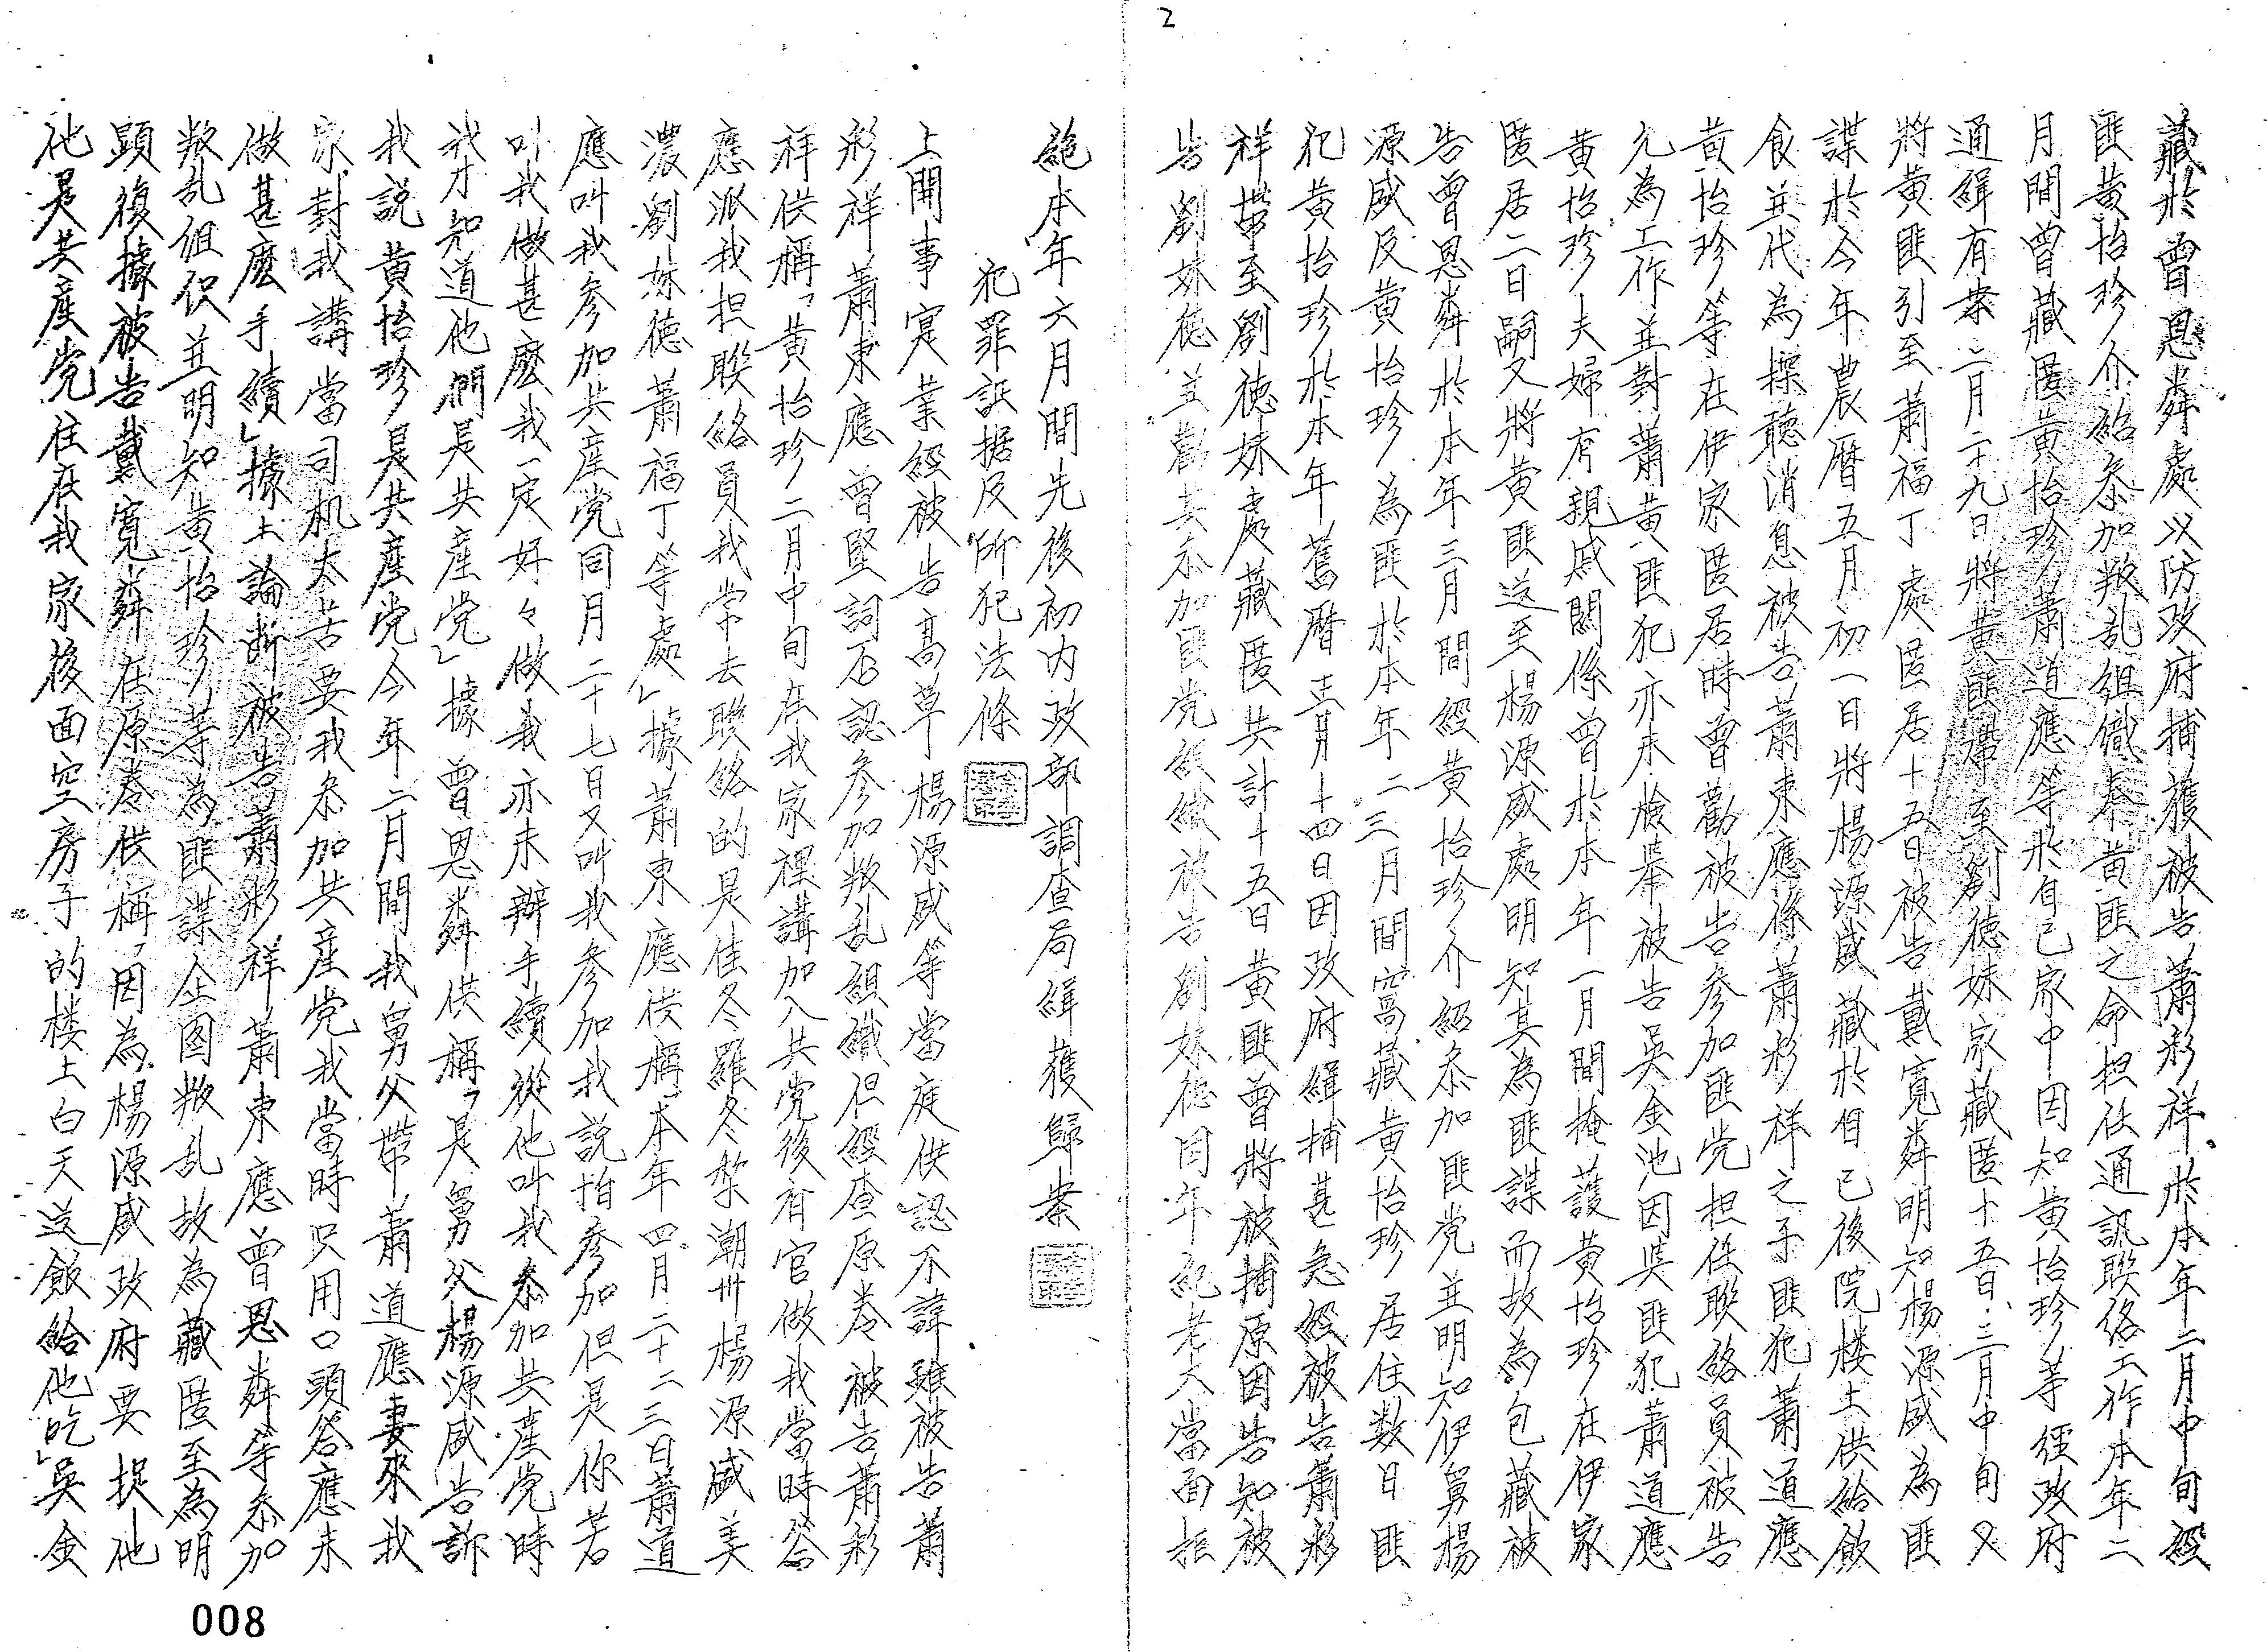 2
藏於曾恩粦處以防政府捕獲被告蕭彩祥於本年二月中旬經
匪黃怡珍介紹叅加叛乱組織奉黃匪之命担任通訊聯絡工作本年二
月間曾藏匿黃怡珍蕭道應等於自己家中因知黃怡珍等經政府
通緝有案二月二十九日將黃匪帶至劉德妹家藏匿十五日三月中旬又
將黃匪引至蕭福丁處匿居十五日被告戴寬粦明知楊源盛為匪
諜於今年農曆五月初一日將楊源盛藏於自己後院楼上供給飲
食並代為探聽消息被告蕭東應係蕭彩祥之子匪犯蕭道應
黃怡珍等在伊家匿居時曾勸被告參加匪党担任聯絡員被告
允為工作並對蕭黃匪犯亦未檢舉被告吳金池因吳匪犯蕭道應
黃怡珍夫婦有親戚關係曾於本年一月間掩護黃怡珍在伊家
匿居二日嗣又將黃匪送至楊源盛處明知其為匪諜而故為包藏被
告曾恩粦於本年三月間經黃怡珍介紹叅加匪党並明知伊舅楊
源盛及黃怡珍為匪於本年二三月間窩藏黃怡珍居住数日匪
犯黃怡珍於本年舊曆三月十四日因政府緝捕甚急經被告蕭彩
祥帶至劉德妹處藏匿共計十五日黃匪曾將被捕原因告知被
告劉妹德並勸其叅加匪党組織被告劉妹德因年紀老大當面拒
絕本年六月間先後初內政部調查局緝獲歸案
犯罪証据及所犯法條
上開事寔業經被告高草楊源盛等當庭供認不諱雖被告蕭
彩祥蕭東應曾堅詞否認參加叛乱組織但經查原卷被告蕭彩
祥供稱「黃怡珍二月中旬在我家裡講加入共党後有官做我當時答
應派我担聯絡員我常去聯絡的是佳冬羅冬祭潮州楊源盛美
濃劉妹德蕭福丁等處」據蕭東應供稱「本年四月二十二三日蕭道
應叫我參加共產党同月二十七日又叫我參加我說怕參加但是你若
叫我做甚麼我一定好々做我亦未辦手續從他叫我叅加共產党時
我才知道他們是共產党」據曾恩粦供稱「是舅父楊源盛告訴
我說黃怡珍是共產党今年二月間我舅父帶蕭道應妻來我
家對我講當司机太苦要我叅加共產党我當時只用口頭答應未
做甚麼手續」據上論断被告蕭彩祥蕭東應曾恩粦等叅加
叛乱組织並明知黃怡珍等為匪諜企图叛乱故為藏匿至為明
顕復據被告戴寬粦在原卷供稱「因為楊源盛政府要捉他
他是共產党住在我家後面空房子的楼上白天送飯給他吃」吳金
008